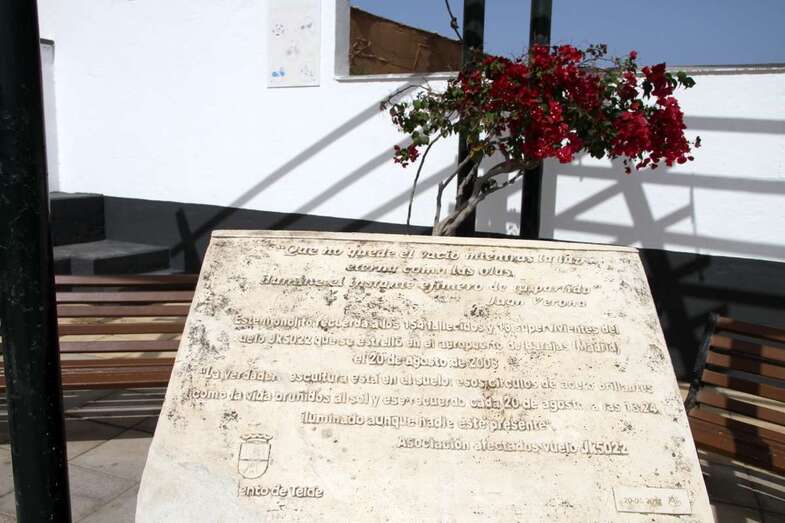 "Que no quede el vacío mientras la luz
eterna como las olas,
ilumine el instante efímero de tu partida"
Juan Verona
Este monolito recuerda a los 154 fallecidos y 18 supervivientes del
vuelo JK5022 que se estrelló en el aeropuerto de Barajas (Madrid)
el 20 de agosto de 2008
"La verdadera escultura está en el suelo, esos círculos de acero brillantes
como la vida bruñidos al sol y ese recuerdo cada 20 de agosto a las 13:24,
iluminado aunque nadie esté presente".
Asociación afectados vuelo JK5022
iento de Telde